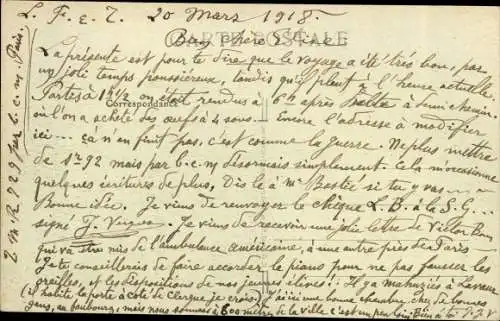 L. F. e T. 20 Mars 1918.
CARTE POSTALE
Bien chère
La présente est pour te dire que le voyage a été très bon, par
un joli temps poussiéreux, tandis qu'il pleut à l'heure actuelle
Partes à 12½ on était rendus à 6h après halte à demi chemin.
Correspondance
où l'on a acheté des œufs à 4 sous - Encore l'adresse à modifier
ici... çà n'en finit pas, c'est comme la guerre. Ne plus mettre
de 1r 92 mais par b.c.m désormais simplement. Cela m'occasionne
quelques écritures de plus, Dis le à Mr Bestie si tu y vas -
Bonne idée. Je viens de renvoyer le chèque L.B. à la S.G...
signé J. Je viens de recevoir une jolie lettre de Victor
qui va être mis de l'ambulance américaine, à une autre près de Paris
Je te conseillerais de faire accorder le piano pour ne pas fausser les
oreilles, et les dispositions de nos jeunes élèves! Il y a Mahuziès à Lavaur
(il habite la porte à côté de Clergue je crois) J'ai ici une bonne chambre chez de bonnes
gens, au faubourg, mais nous sommes à 600 mètres de la ville c'est un peu loin. Bien à toi J.
2 M R 229 par b.c.m. Paris.